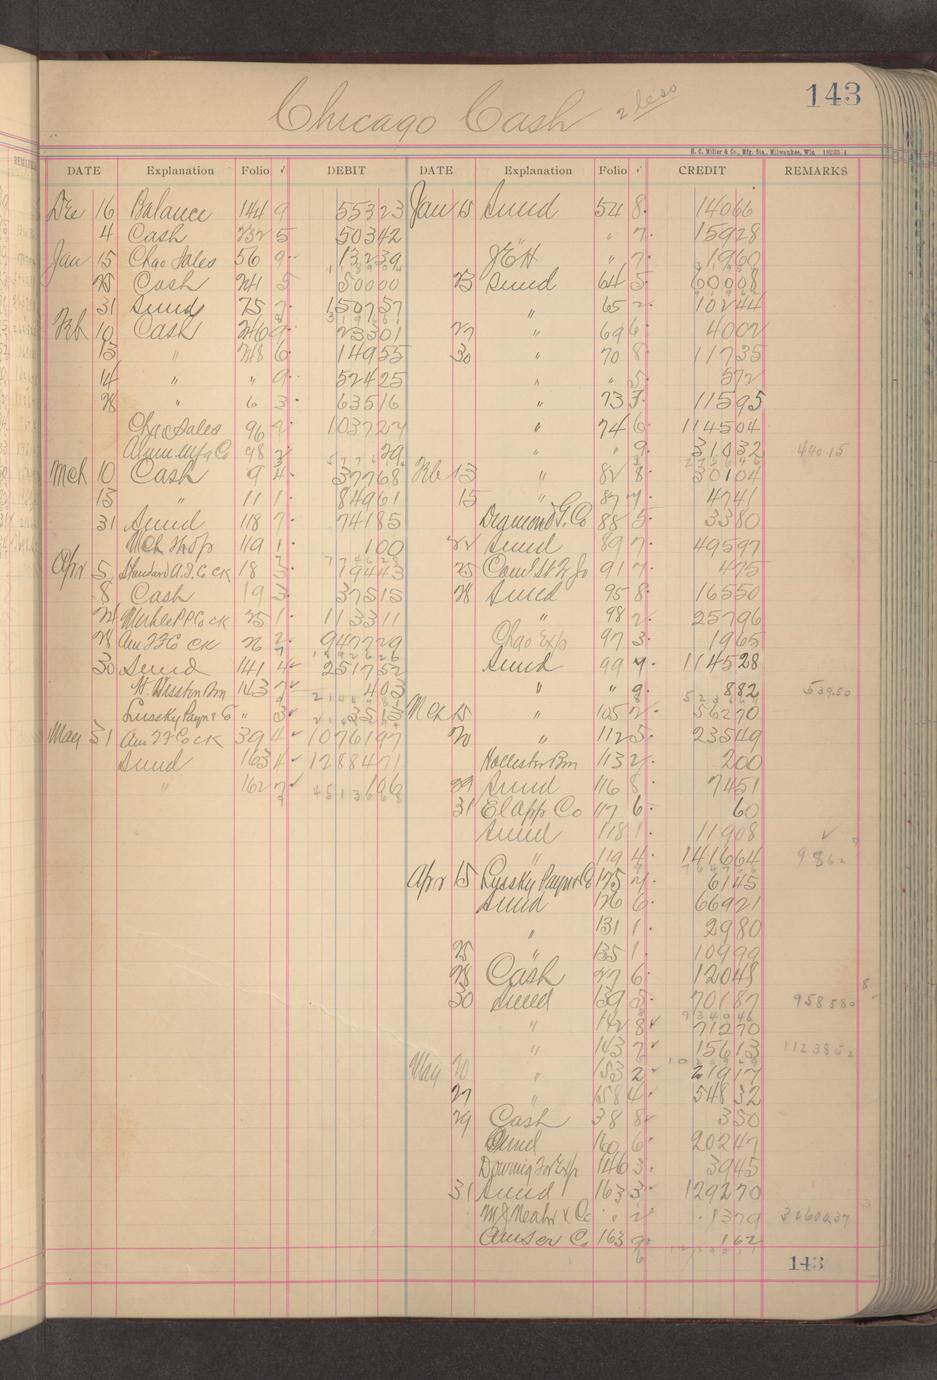 143
Chicago Cash
2 less
H. C. Miller & Co., Mfg. Sta., Milwaukee, Wis.
DATE Explanation Folio √ DEBIT DATE Explanation Folio √ CREDIT REMARKS
Dec 16 Balance 144 9 55323 Jan 15 Sund 54 8 14066
4 Cash 232 5 50342 " " 7 15928
Jan 15 Chgo Sales 56 9 13239 J E H " 7 1960
25 Cash 241 5 50000 23 Sund 64 5 60008
31 Sund 75 7 150757 " 65 2 10244
Feb 10 Cash 246 9 23301 27 " 69 6 4002
13 " 248 6 14955 30 " 70 8 11735
14 " " 9 52425 " " 5 572
28 " 6 3 63516 " 73 7 11595
Chgo Sales 96 2 103727 " 74 6 114504
Alum Mfg Co 98 2 29 " " 9 31032 490.15
Mch 10 Cash 9 4 37768 Feb 13 " 82 8 30104
13 " 11 1 84961 15 " 87 7 4741
31 Sund 118 7 74185 G. Co 88 5 3380
Mch 119 1 100 22 Sund 89 7 49597
Apr 5 Standard CK 18 3 79443 25 91 7 475
8 Cash 19 3 37515 28 Sund 95 8 16550
24 CK 25 1 113311 " 98 2 25796
28 Am CK 26 2 947729 Chgo Exp 97 3 1965
30 Sund 141 4 251752 Sund 99 7 114528
143 7 402 " " 9 882 539.50
Lussky Payn & Co " 3 Mch 15 " 105 2 56270
May 31 Am CK 39 4 1076197 20 " 112 5 23549
Sund 163 4 1288471 Hollister 113 2 200
" 162 7 106 29 Sund 116 8 7451
31 El App Co 117 6 60
Sund 118 1 11908 √
" 119 4 141664 9862
Apr 15 Lussky Payn & Co 125 7 6145
Sund 126 6 66921
" 131 1 2980
25 " 135 1 10999
28 Cash 27 6 12048
30 Sund 139 5 70187 958580
" 142 8 71270
" 143 7 15613 1123852
May 20 " 153 2 21917
27 " 158 4 54832
29 Cash 38 8 350
Sund 160 6 20247
Exp 146 3 3945
31 Sund 163 3 129270
& Co " 2 1379
Co 163 9 162
143